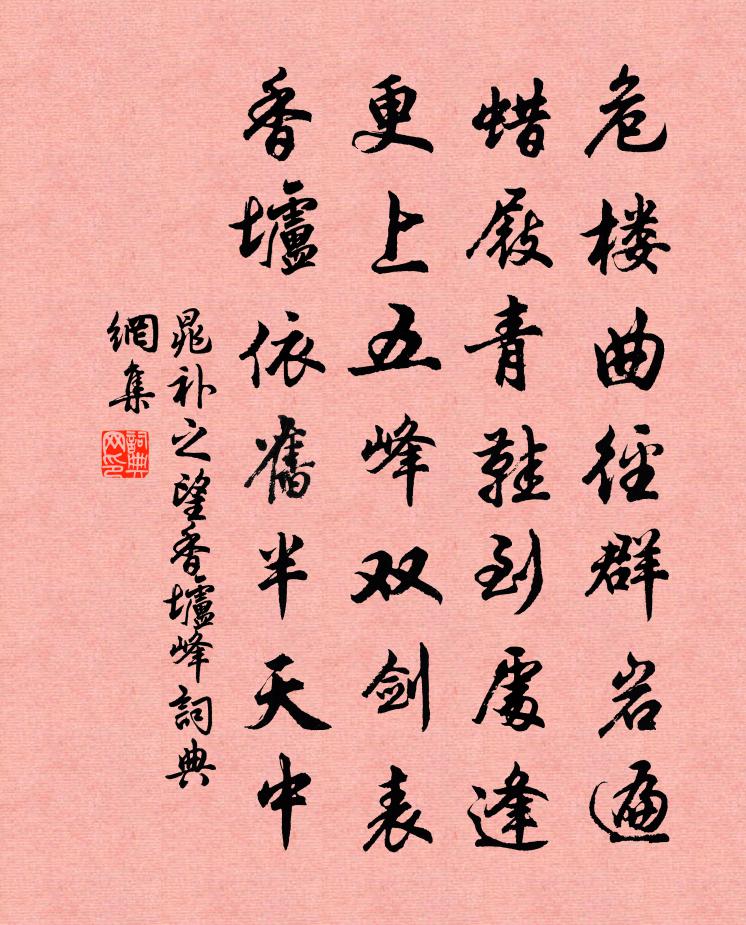 危楼曲径群岩遍
蜡屐青鞋到處逢
更上五峰双剑表
香壚依舊半天中
晁补之望香壚峰詞典
網集
詞典
网印